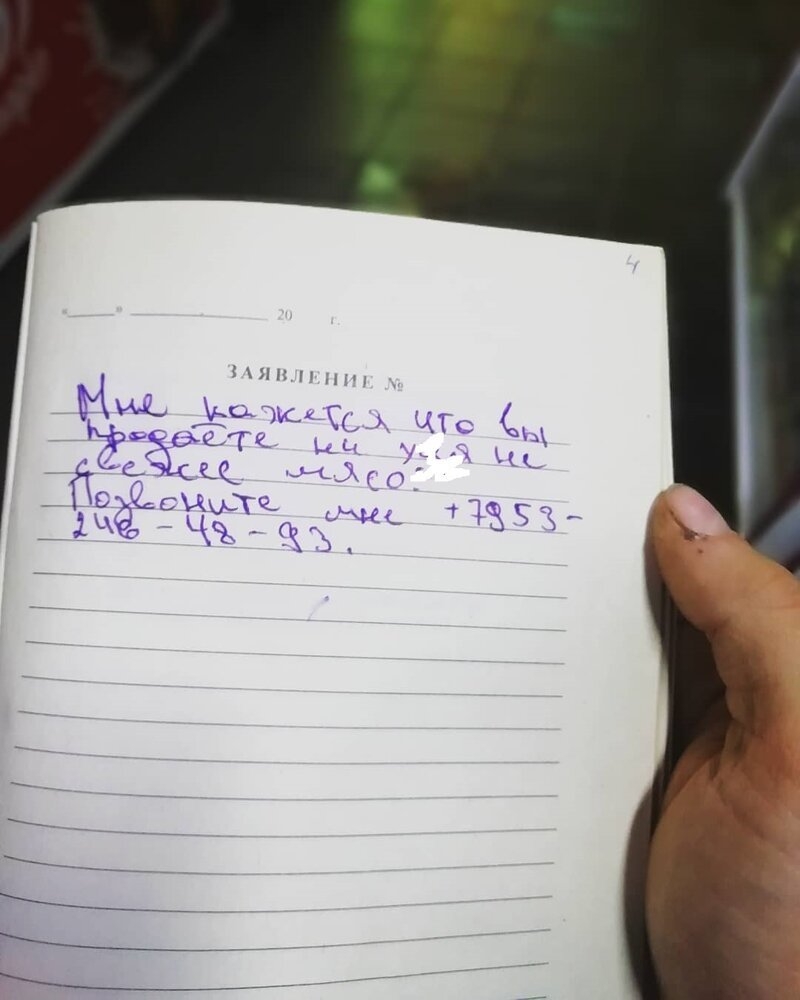 4
«____» ____________ 20 г.
ЗАЯВЛЕНИЕ №
Мне кажется что вы
продаёте ни не
свежее мясо.
Позвоните мне +7953-
246-48-93.